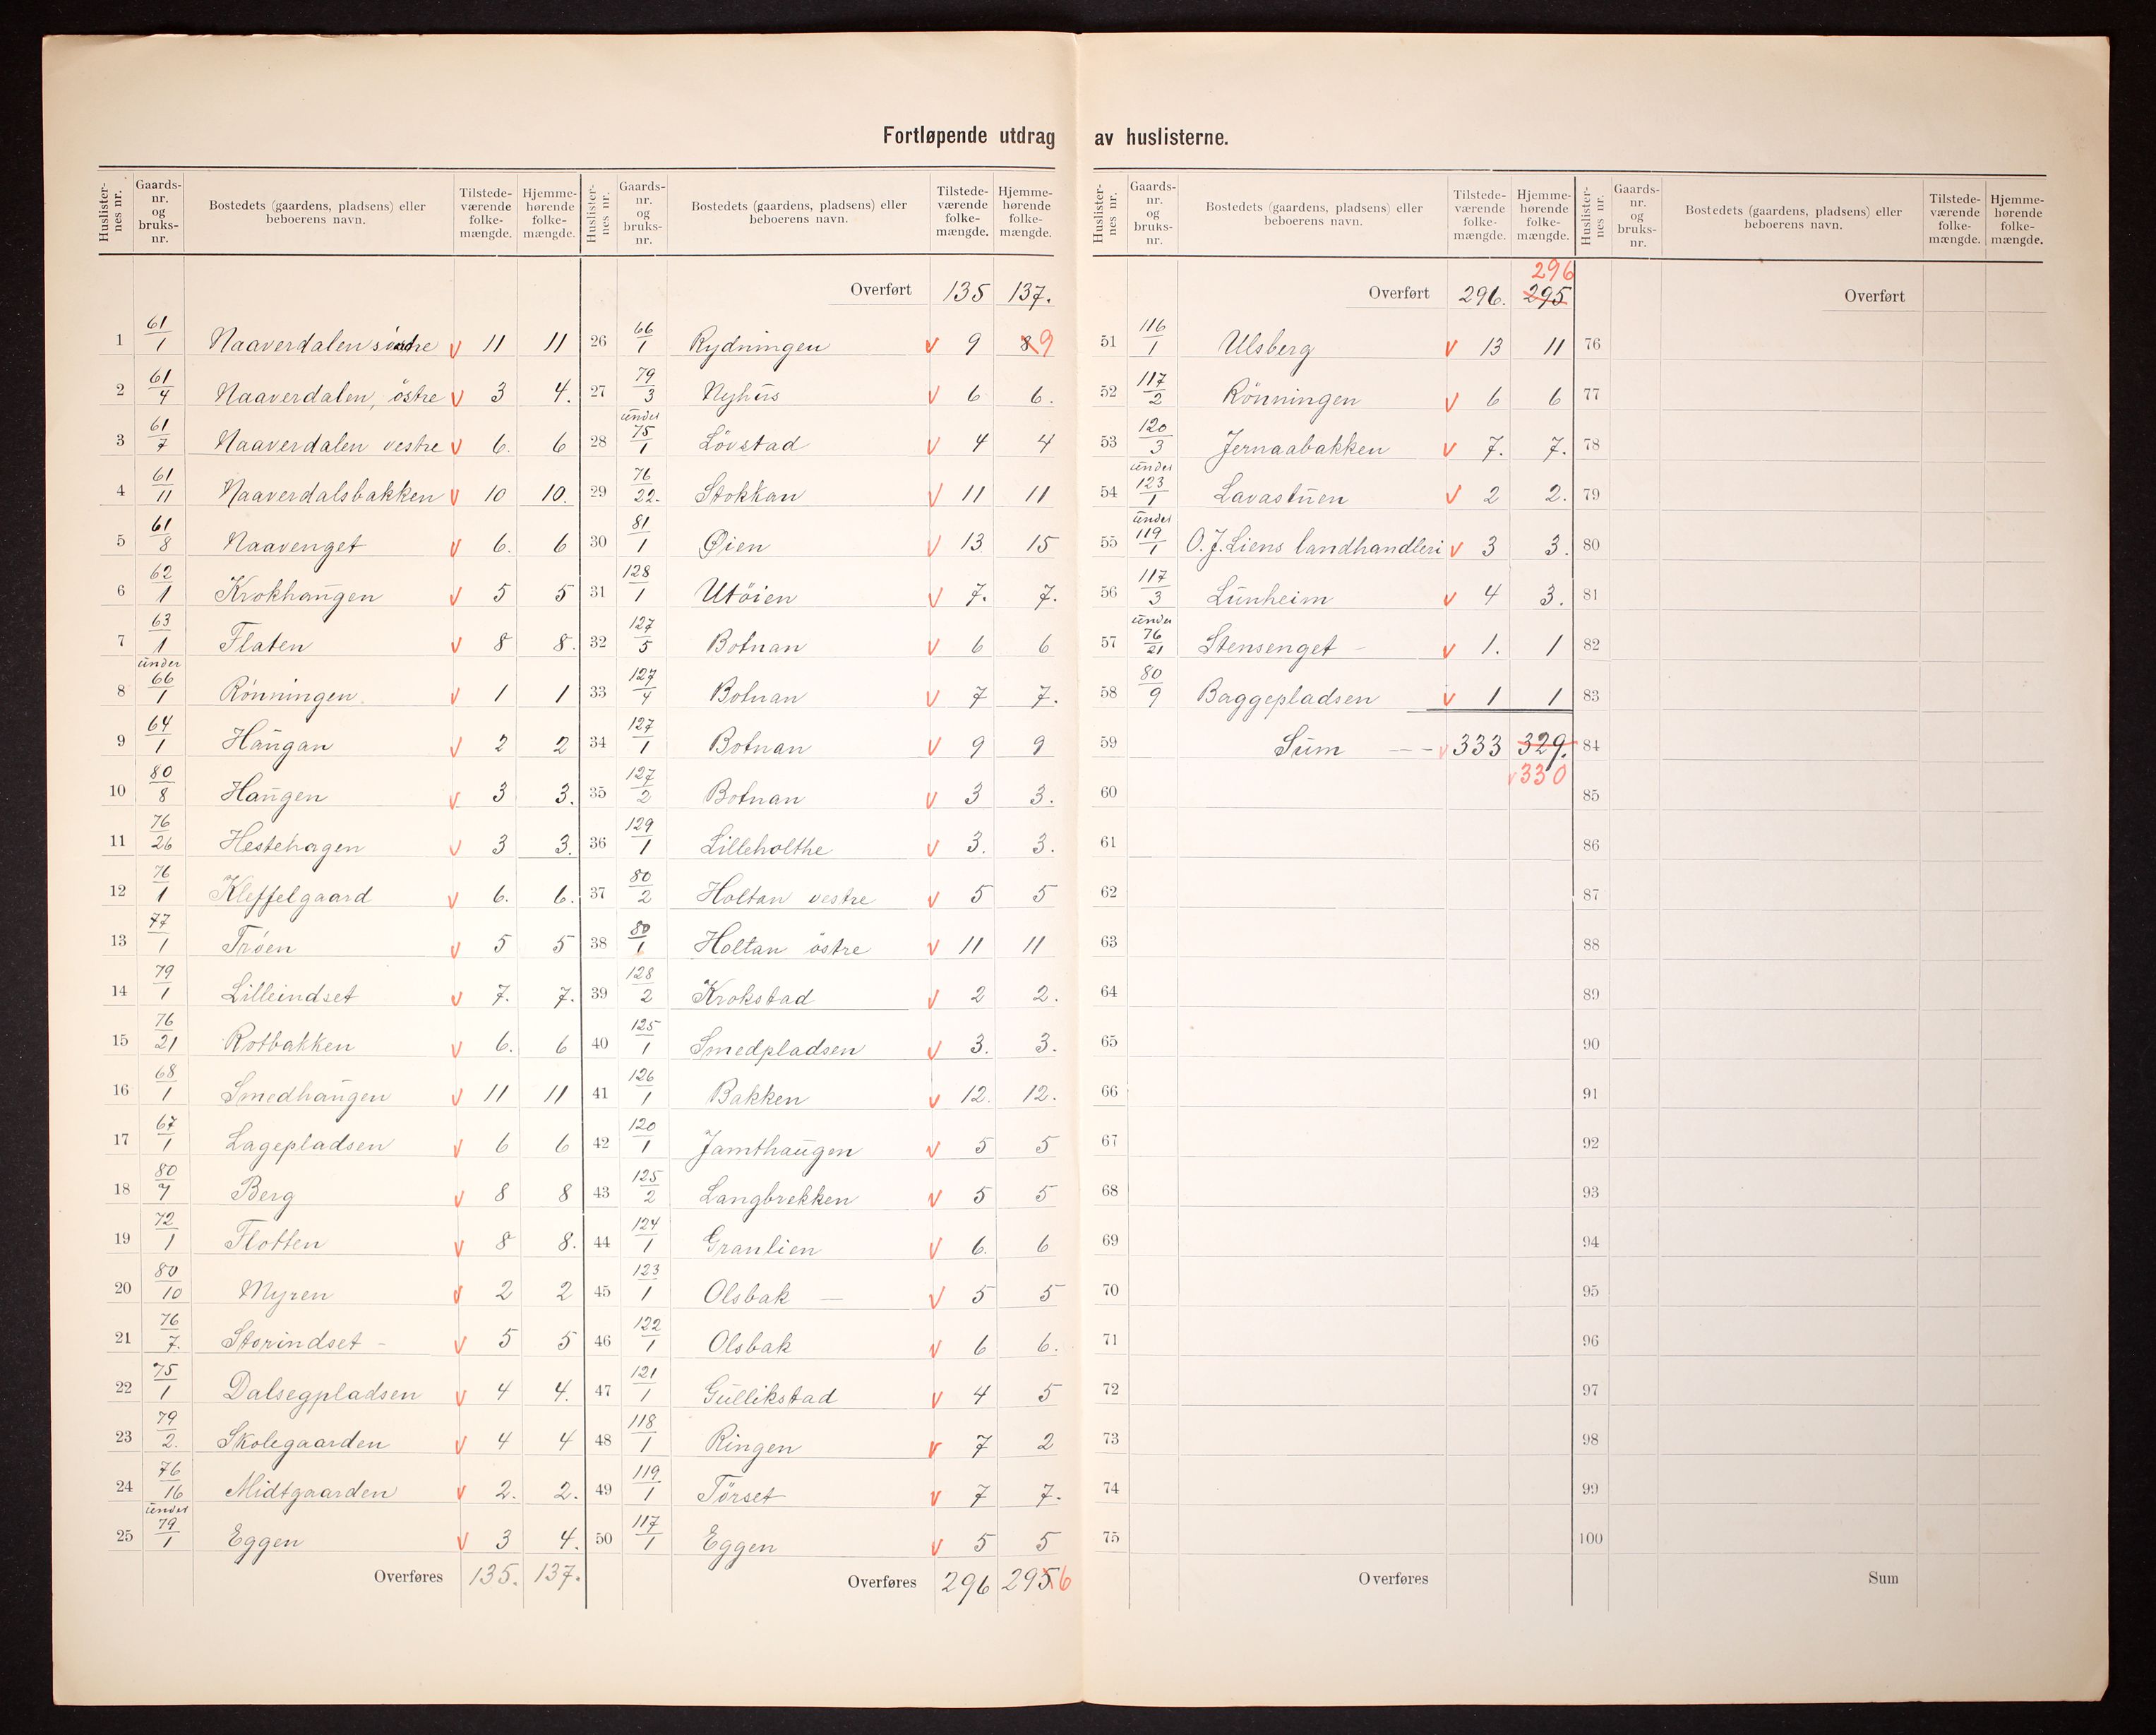 Fortløpende utdrag av huslisterne.
Huslisternes nr. Gaardsnr. og bruksnr. Bostedets (gaardens, pladsens) eller beboerens navn. Tilstedeværende folkemængde. Hjemmehørende folkemængde.
1 61/1 Naaverdalen söndre v 11 11
2 61/4 Naaverdalen, östre v 3 4.
3 61/7 Naaverdalen vestre v 6. 6
4 61/11 Naaverdalsbakken v 10 10.
5 61/8 Naavenget v 6. 6
6 62/1 Krokhaugen v 5 5
7 63/1 Flaten v 8 8.
8 under 66/1 Rönningen. v 1 1
9 64/1 Haugan v 2 2
10 80/8 Haugen v 3 3.
11 76/26 Hestehagen v 3 3.
12 76/1 Kleffelgaard v 6. 6.
13 77/1 Tröen v 5 5
14 79/1 Lilleindset v 7. 7.
15 76/21 Rotbakken v 6. 6
16 68/1 Smedhaugen v 11 11
17 67/1 Lagepladsen v 6 6
18 80/7 Berg v 8 8
19 72/1 Flotten v 8 8.
20 80/10 Myren v 2 2
21 76/7. Storindset - v 5 5
22 75/1 Dalsegpladsen v 4 4.
23 79/2. Skolegaarden v 4 4
24 76/16 Midtgaarden v 2. 2.
25 under 79/1 Eggen v 3 4.
Overføres 135. 137.
Huslisternes nr. Gaardsnr. og bruksnr. Bostedets (gaardens, pladsens) eller beboerens navn. Tilstedeværende folkemængde. Hjemmehørende folkemængde.
Overført 135 137.
26 66/1 Rydningen v 9 8 9
27 79/3 Nyhus v 6 6.
28 under 75/1 Lövstad v 4 4
29 76/22. Stokkan v 11 11
30 81/1 Øien v 13 15
31 128/1 Utöien v 7. 7.
32 127/5 Botnan v 6 6
33 127/4 Botnan v 7 7.
34 127/1 Botnan v 9 9
35 127/2 Botnan v 3 3.
36 129/1 Lilleholthe v 3. 3.
37 80/2 Holtan vestre v 5 5
38 80/1 Holtan östre v 11 11
39 128/2 Krokstad v 2 2.
40 125/1 Smedpladsen v 3. 3.
41 126/1 Bakken v 12. 12.
42 120/1 Jamthaugen v 5 5
43 125/2 Langbrekken v 5 5
44 124/1 Granlien v 6. 6
45 123/1 Olsbak — v 5 5
46 122/1 Olsbak v 6 6.
47 121/1 Gullikstad v 4 5
48 118/1 Ringen v 7 2
49 119/1 Törset v 7 7.
50 117/1 Eggen v 5 5
Overføres 296 295 6
Huslisternes nr. Gaardsnr. og bruksnr. Bostedets (gaardens, pladsens) eller beboerens navn. Tilstedeværende folkemængde. Hjemmehørende folkemængde.
296
Overført 296. 295
51 116/1 Ulsberg v 13 11
52 117/2 Rönningen v 6 6
53 120/3 Jernaabakken v 7. 7.
54 under 123/1 Lavastuen v 2 2.
55 under 119/1 O. J. Liens landhandleri v 3 3.
56 117/3 Lunheim v 4 3.
57 under 76/21 Stensenget - v 1. 1
58 80/9 Baggepladsen v 1 1
59 Sum — – v 333 329.
v 330
60
61
62
63
64
65
66
67
68
69
70
71
72
73
74
75
Overføres
Huslisternes nr. Gaardsnr. og bruksnr. Bostedets (gaardens, pladsens) eller beboerens navn. Tilstedeværende folkemængde. Hjemmehørende folkemængde.
Overført
76
77
78
79
80
81
82
83
84
85
86
87
88
89
90
91
92
93
94
95
96
97
98
99
100
Sum